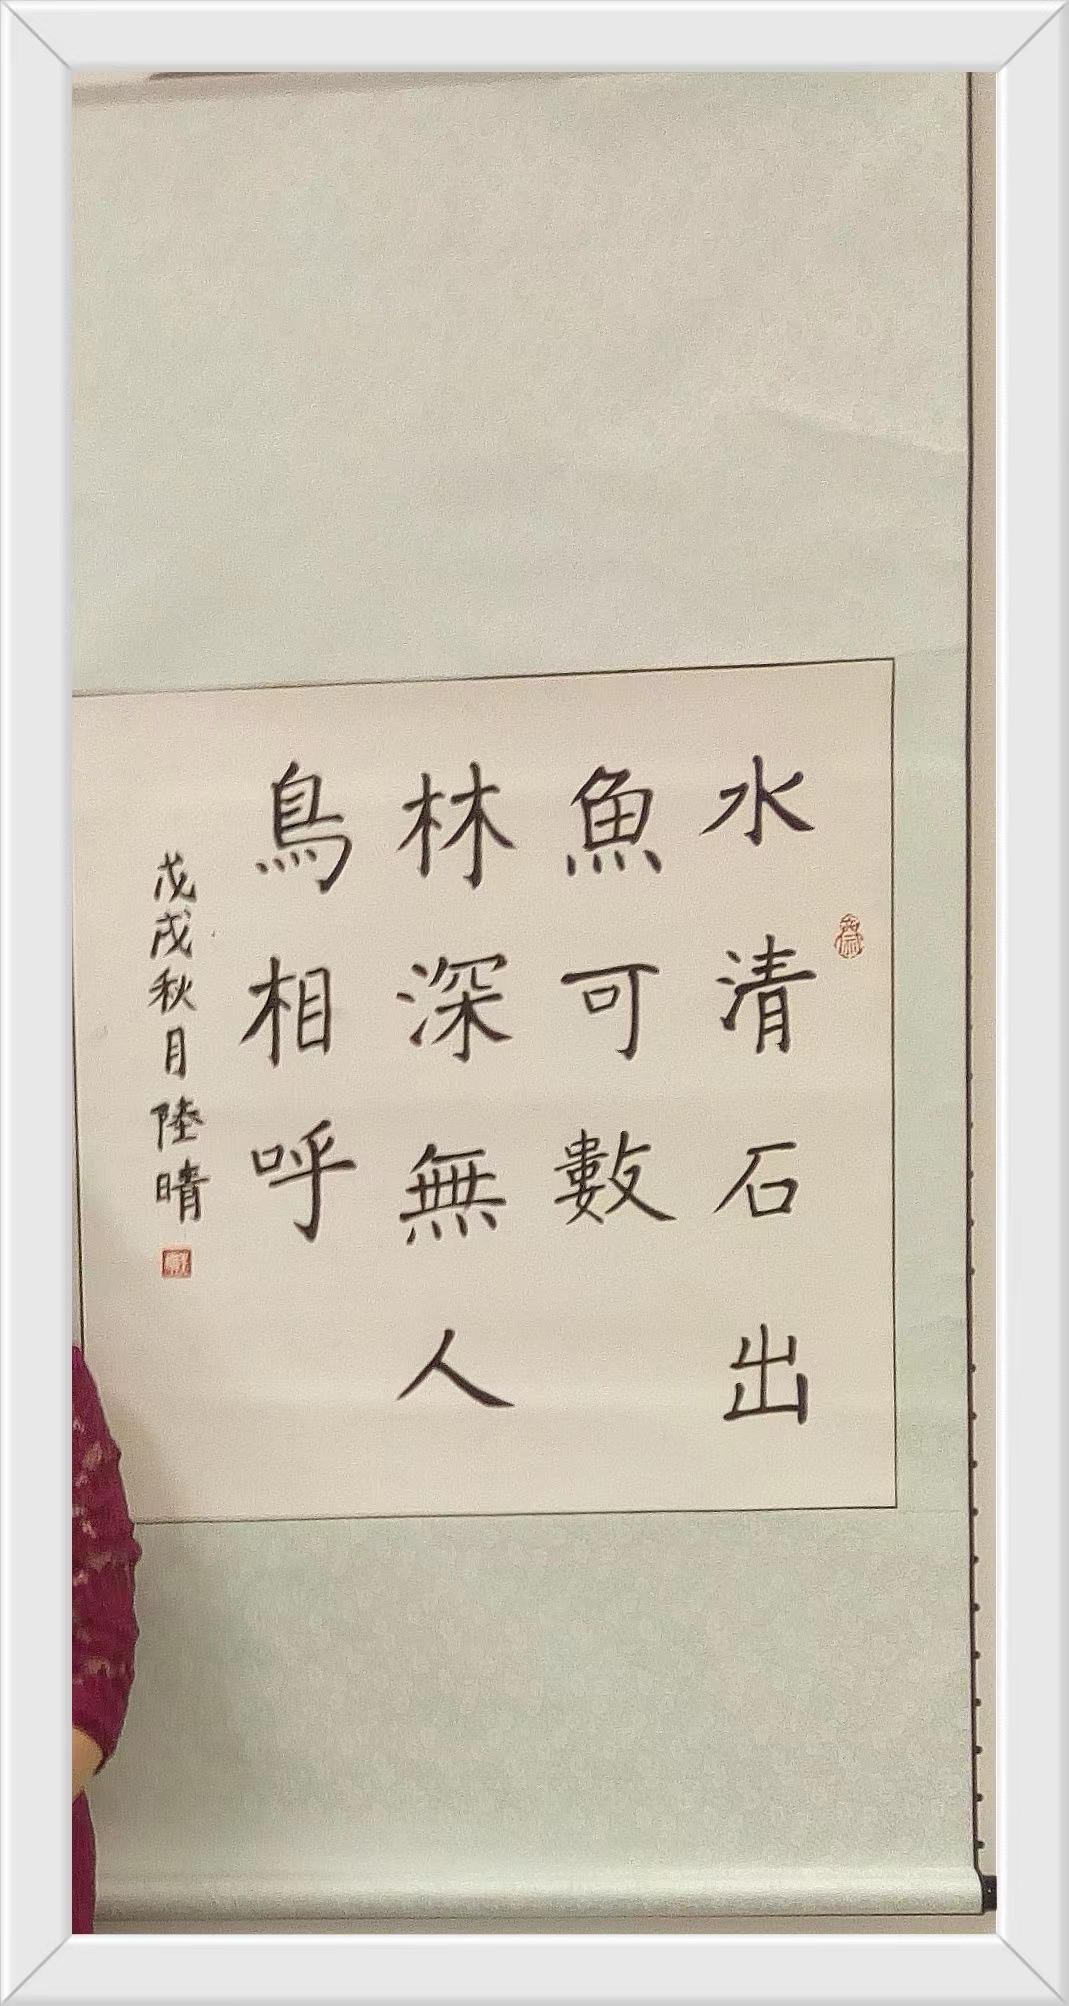 水清石出
魚可數
林深無人
鳥相呼
戊戌秋月陸晴